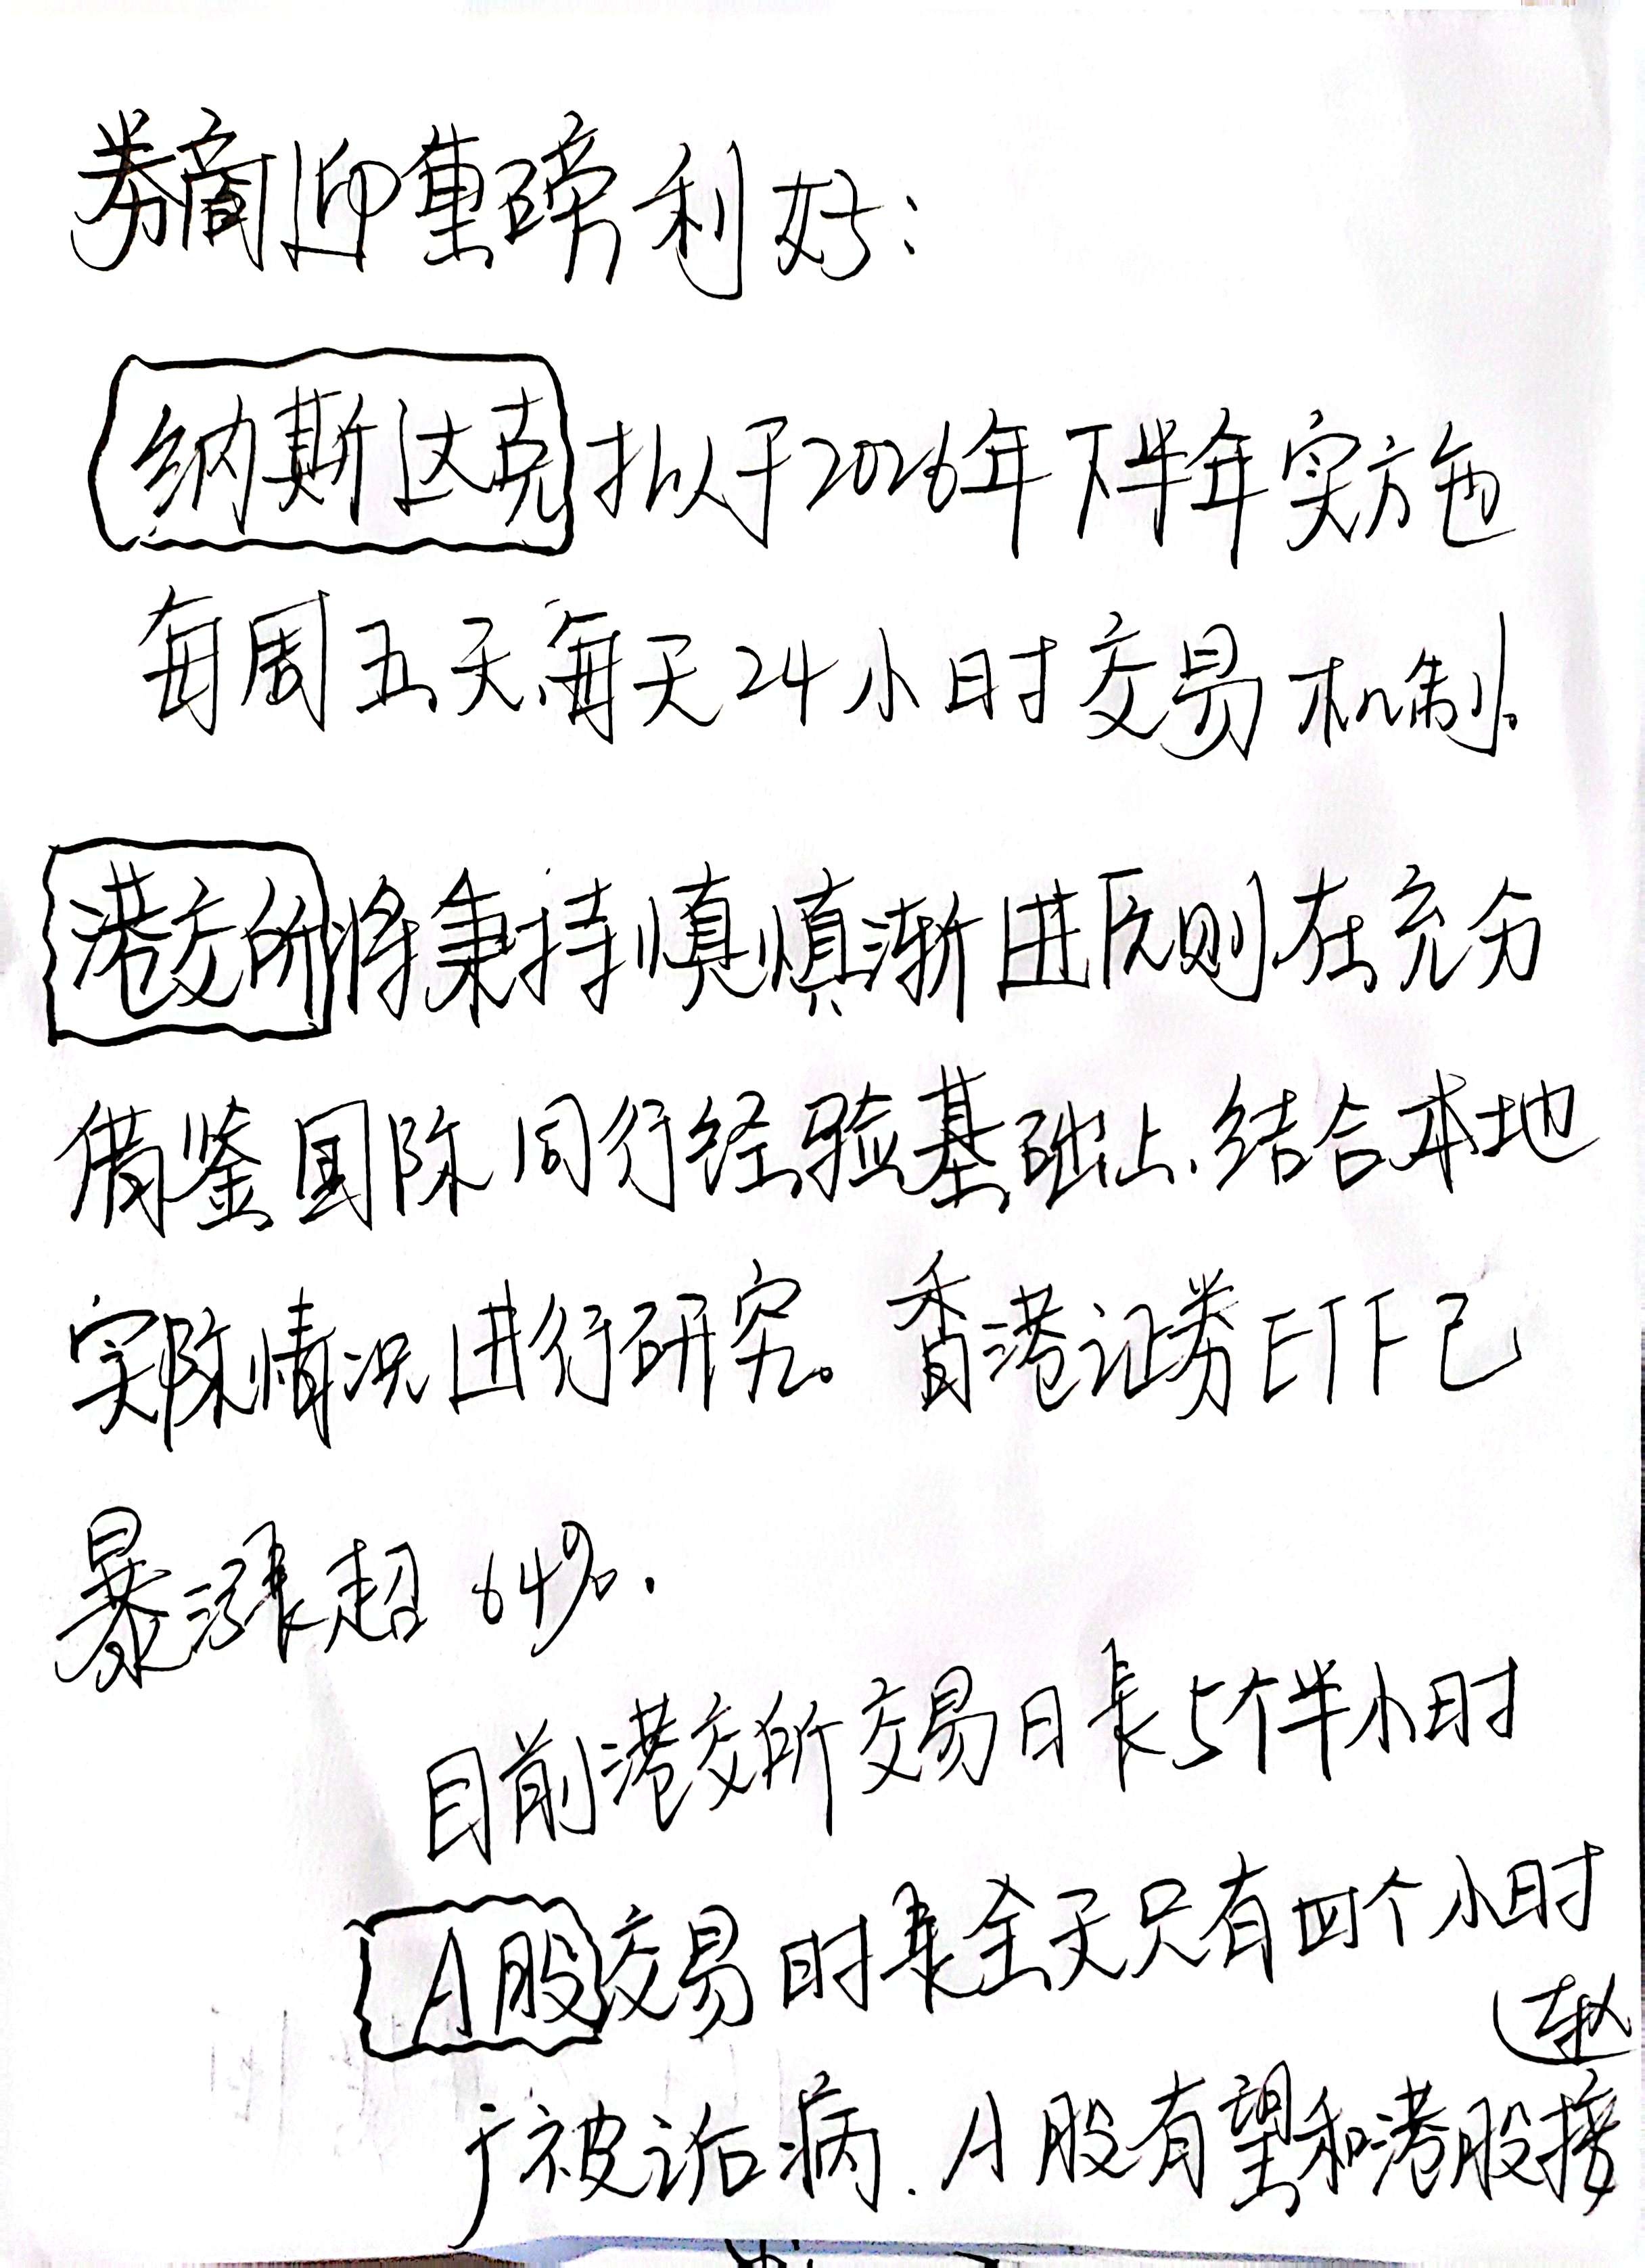 券商迎重磅利好：
纳斯达克拟于2026年下半年实施
每周五天、每天24小时交易机制。
港交所将秉持慎慎渐进原则、在充分
借鉴国际同行经验基础上、结合本地
实际情况进行研究。香港证券ETF已
暴涨超64%.
目前港交所交易日长5个半小时
A股交易时长全天只有四个小时
于被诟病.A股有望和港股接